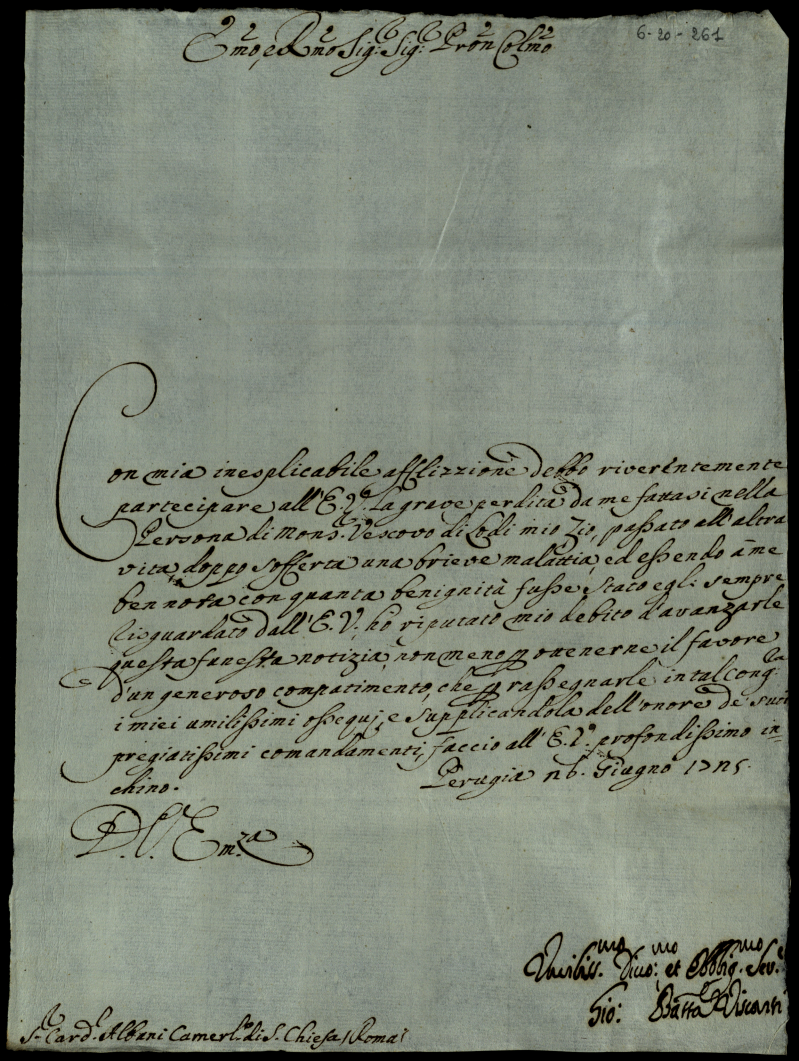 6-20-261
Emo, e Rmo Sig: Sig: Pron Colmo
Con mia inesplicabile afflizzione debbo riverentemente
partecipare all'E. V. la grave perdita da me fattasi nella
Persona di Mons. Vescovo di Lodi mio Zio, passato all'altra
vita, doppo sofferta una brieve malattia, ed essendo à me
ben nota con quanta benignità fusse stato egli sempre
riguardato dall'E. V., ho riputato mio debito d'avanzarle
questa funesta notizia, non meno p ottenerne il favore
d'un generoso compatimento, che p rassegnarle in tal Congra
i miei umilissimi ossequj, e supplicandola dell'onore de' suoi
pregiatissimi comandamenti, faccio all'E. V. profondissimo in=
chino. Perugia 26. Giugno 1725.
D. V. Emza
Umiliss.mo Divo:mo et Obblig.mo Ser.e
Gio: Batta Visconti
S. Card. Albani Camerl.o di S. Chiesa / Roma /